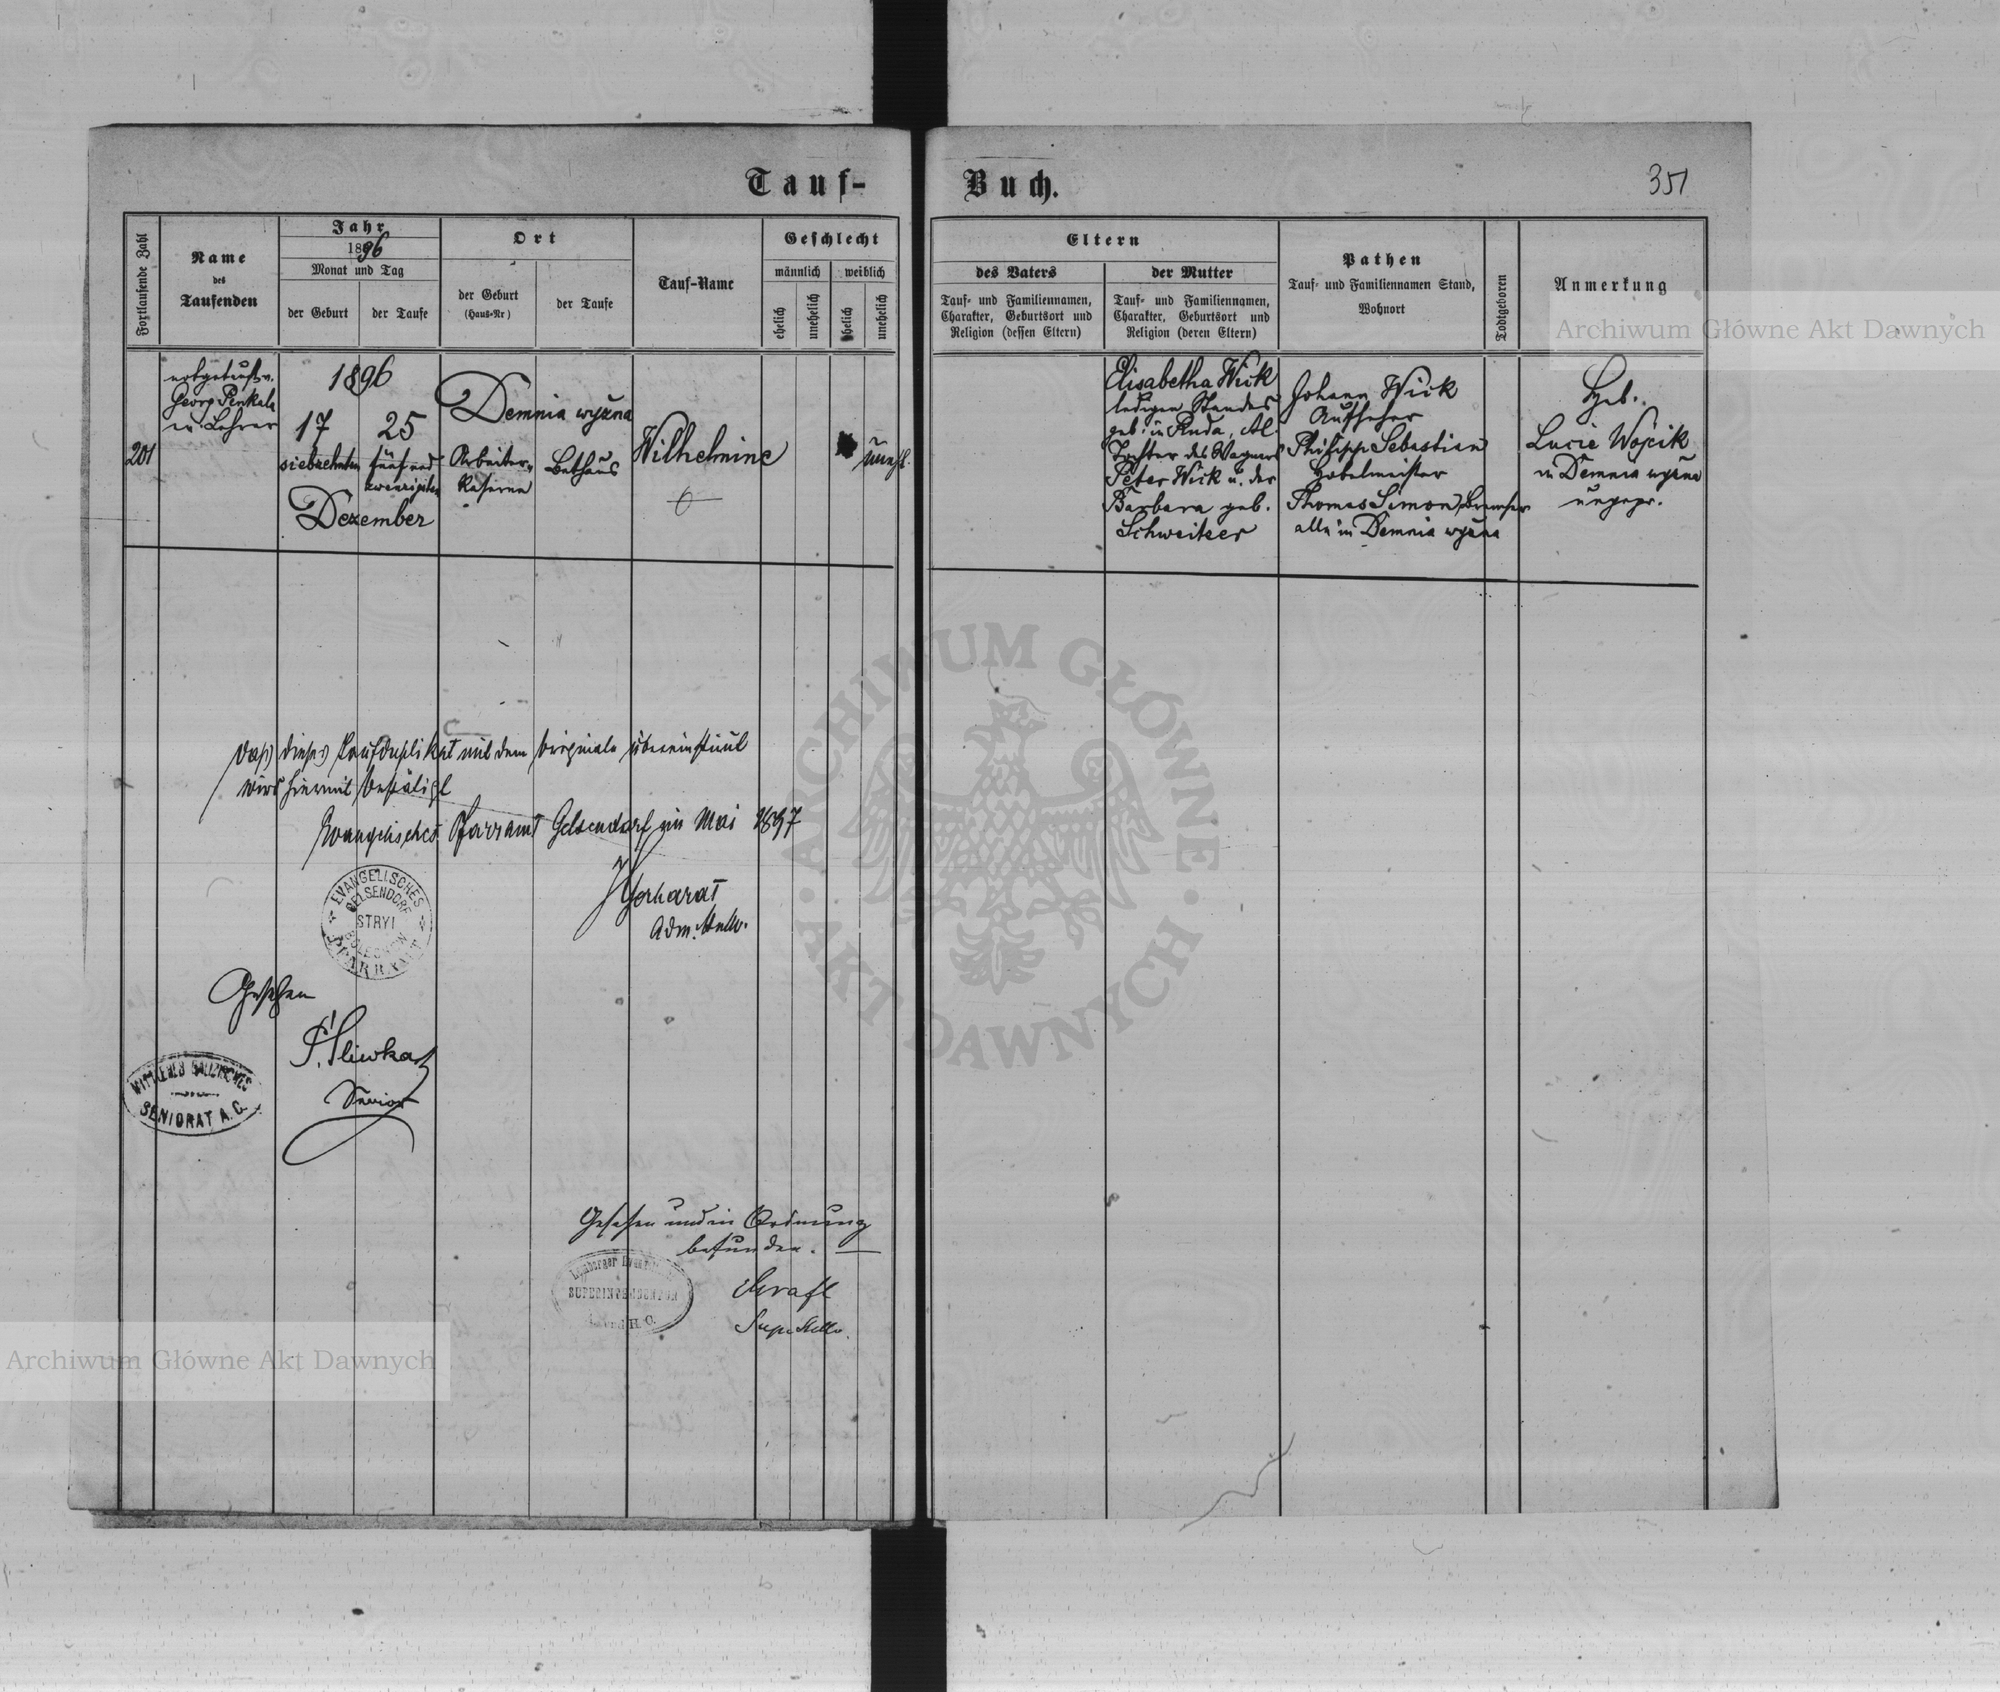 Tauf-Buch.
351
Fortlaufende Zahl
Name
des
Taufenden
Jahr
1896
Monat und Tag
der Geburt
der Taufe
Ort
der Geburt
(Haus-Nr)
der Taufe
Tauf-Name
Geschlecht
männlich
weiblich
ehelich
unehelich
ehelich
unehelich
Eltern
des Vaters
Tauf- und Familiennamen,
Charakter, Geburtsort und
Religion (dessen Eltern)
der Mutter
Tauf- und Familiennamen,
Charakter, Geburtsort und
Religion (deren Eltern)
Pathen
Tauf- und Familiennamen Stand,
Wohnort
Todtgeboren
Anmerkung
201
notgetauft v.
Georg Penkala
ev. Lehrer
1896
17
siebzehnten
25
fünfund
zwanzigsten
Dezember
Demnia wyżna
Arbeiter-
Kaserne
Bethaus
Wilhelmine
unehl.
Elisabetha Wick
ledigen Standes
geb. in Ruda, AC
Tochter des Wagners
Peter Wick u. der
Barbara geb.
Schweitzer
Johann Wick
Aufseher
Philipp Sebastian
Hobelmeister
Thomas Simon, Bremser
alle in Demnia wyżna
Heb.
Lucie Wojcik
in Demnia wyżna
ungepr.
Daß dieses Taufduplikat mit dem Originale übereinstimmt
wird hiermit bestätigt
Evangelisches Pfarramt Gelsendorf im Mai 1897
Adm. Stellv.
EVANGELISCHES
GELSENDORF
STRYI
BOLECHOW
PFARRAMT
Gesehen
P. Sliwka
Senior
MITTLERES GALIZISCHES
SENIORAT A.C.
Gesehen und in Ordnung
befunden.
Lemberger Evang.
SUPERINTENDENTUR
A. und H. C.
Kraft
Sup. Stellv.
Archiwum Główne Akt Dawnych
ARCHIWUM GŁÓWNE · AKT DAWNYCH ·
Archiwum Główne Akt Dawnych